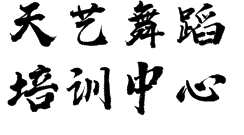 天艺舞蹈
培训中心